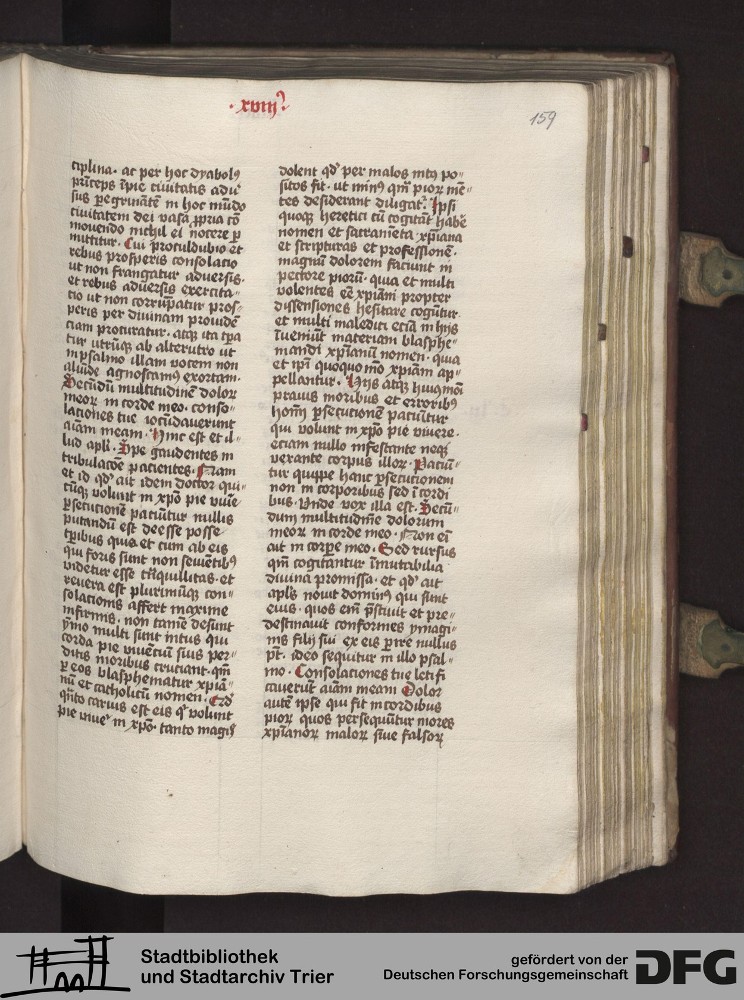 ·xviijꝰ
159
ciplina· ac per hoc dyabolꝰ
prīceps īpie ciuitatis adū
sus peg̾natē in hoc mūdo
ciuitatem dei vasa ꝓpria cō
mouendo nichil ei nocere ꝑ
mittitur· Cui proculdubio et
rebus prosperis consolatio
ut non frangatur aduersis·
et rebus aduersis exercita-
tio ut non corrūpatur pros-
peris per diuinam prouidē
ciam procuratur· atqꝫ ita tꝑa
tur utrūqꝫ ab alterutro ut
in psalmo illam vocem non
aliūde agnoscamꝰ exortam·
Secūdū multitudinē dolor
meoꝝ in corde meo· conso-
laciones tue iocūdauerunt
aīam meam· Hinc est et il-
lud apl̄i· Spe gaudentes in
tribulacōe pacientes· Nam
et id qd̓ ait idem doctor qui-
cūqꝫ volunt in xp̄o pie viuē
ꝑsecutionē paciūtur nullis
putandū est deesse posse
tꝑibus quia et cum ab eis
qui foris sunt non seuientibꝰ
videtur esse trāquillitas· et
reuera est plurimūqꝫ con-
solacionis affert maxime
infirmis· non tamē desunt
ymo multi sunt intus qui
corda pie viuenciū suis per-
ditis moribus cruciant· qm̄
ꝑ eos blasphematur xpiā-
nū et catholicū nomen· Qd̓
qn̄to carius est eis qͥ volunt
pie viuē in xp̄o· tanto magis
dolent qd̓ per malos intꝰ po-
sitos fit· ut minꝰ qm̄ pioꝝ mē-
tes desiderant diligat᷑· Ipsi
quoqꝫ heretici cū cogitāt᷑ habē
nomen et sacramēta xpiana
et scripturas et professionē·
magnū dolorem faciunt in
pectore pioꝝ· quia et multi
volentes eē xpiani propter
dissensiones hesitare cogūtur·
et multi maledici eciā in hijs
īueniūt materiam blasphe-
mandi xpianū nomen· quia
et ip̄i quoquomō xpiani ap-
pellantur· Hijs atqꝫ huiꝰmōi
prauis moribus et erroribꝰ
hoīm ꝑsecutionē paciūtur
qui volunt in xp̄o pie viuere·
eciam nullo infestante neqꝫ
vexante corpus illoꝝ· Paciū-
tur quippe hanc ꝑsecutionem
non in corporibus sed ī cordi
bus· Unde vox illa est· Secū-
dum multitudinē dolorum
meoꝝ in corde meo· Non eī
ait in corpꝫe meo· Sed rursus
qm̄ cogitantur īmutabilia
diuina promissa· et qd̓ ait
apl̄s nouit dominꝰ qui sunt
eius· quos em̄ p̄sciuit et pre-
destinauit conformes ymagi-
nis filij sui ex eis ꝑire nullus
pt̄· ideo sequitur in illo psal-
mo· Consolaciones tue letifi
cauerūt aīam meam Dolor
autē ipse qui fit in cordibus
pioꝝ quos persequūtur mores
xpianoꝝ maloꝝ siue falsoꝝ
Stadtbibliothek
und Stadtarchiv Trier
gefördert von der
Deutschen Forschungsgemeinschaft
DFG